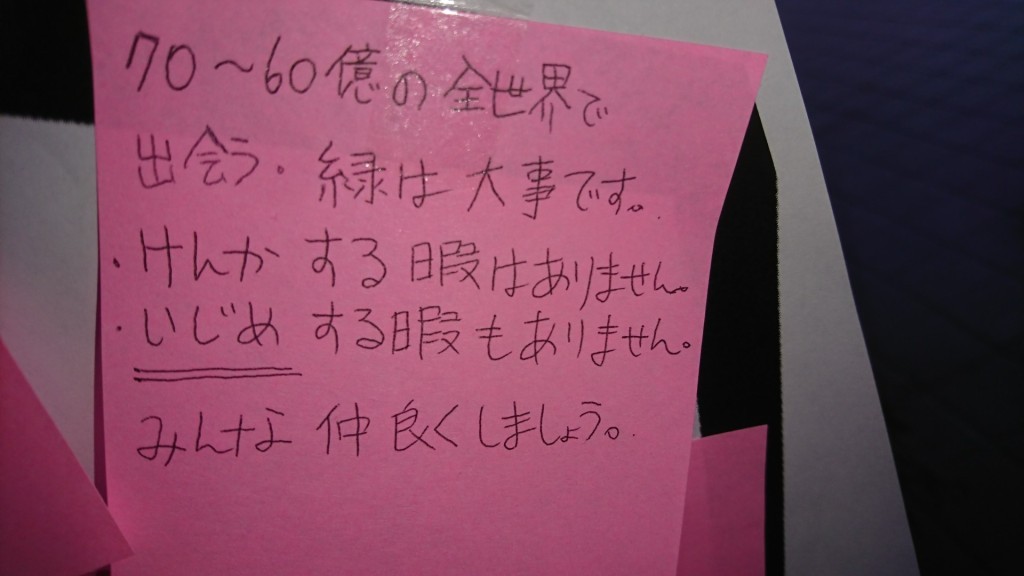 70〜60億の全世界で
出会う・縁は大事です。
・けんかする暇はありません。
・いじめする暇もありません。
みんな仲良くしましょう。